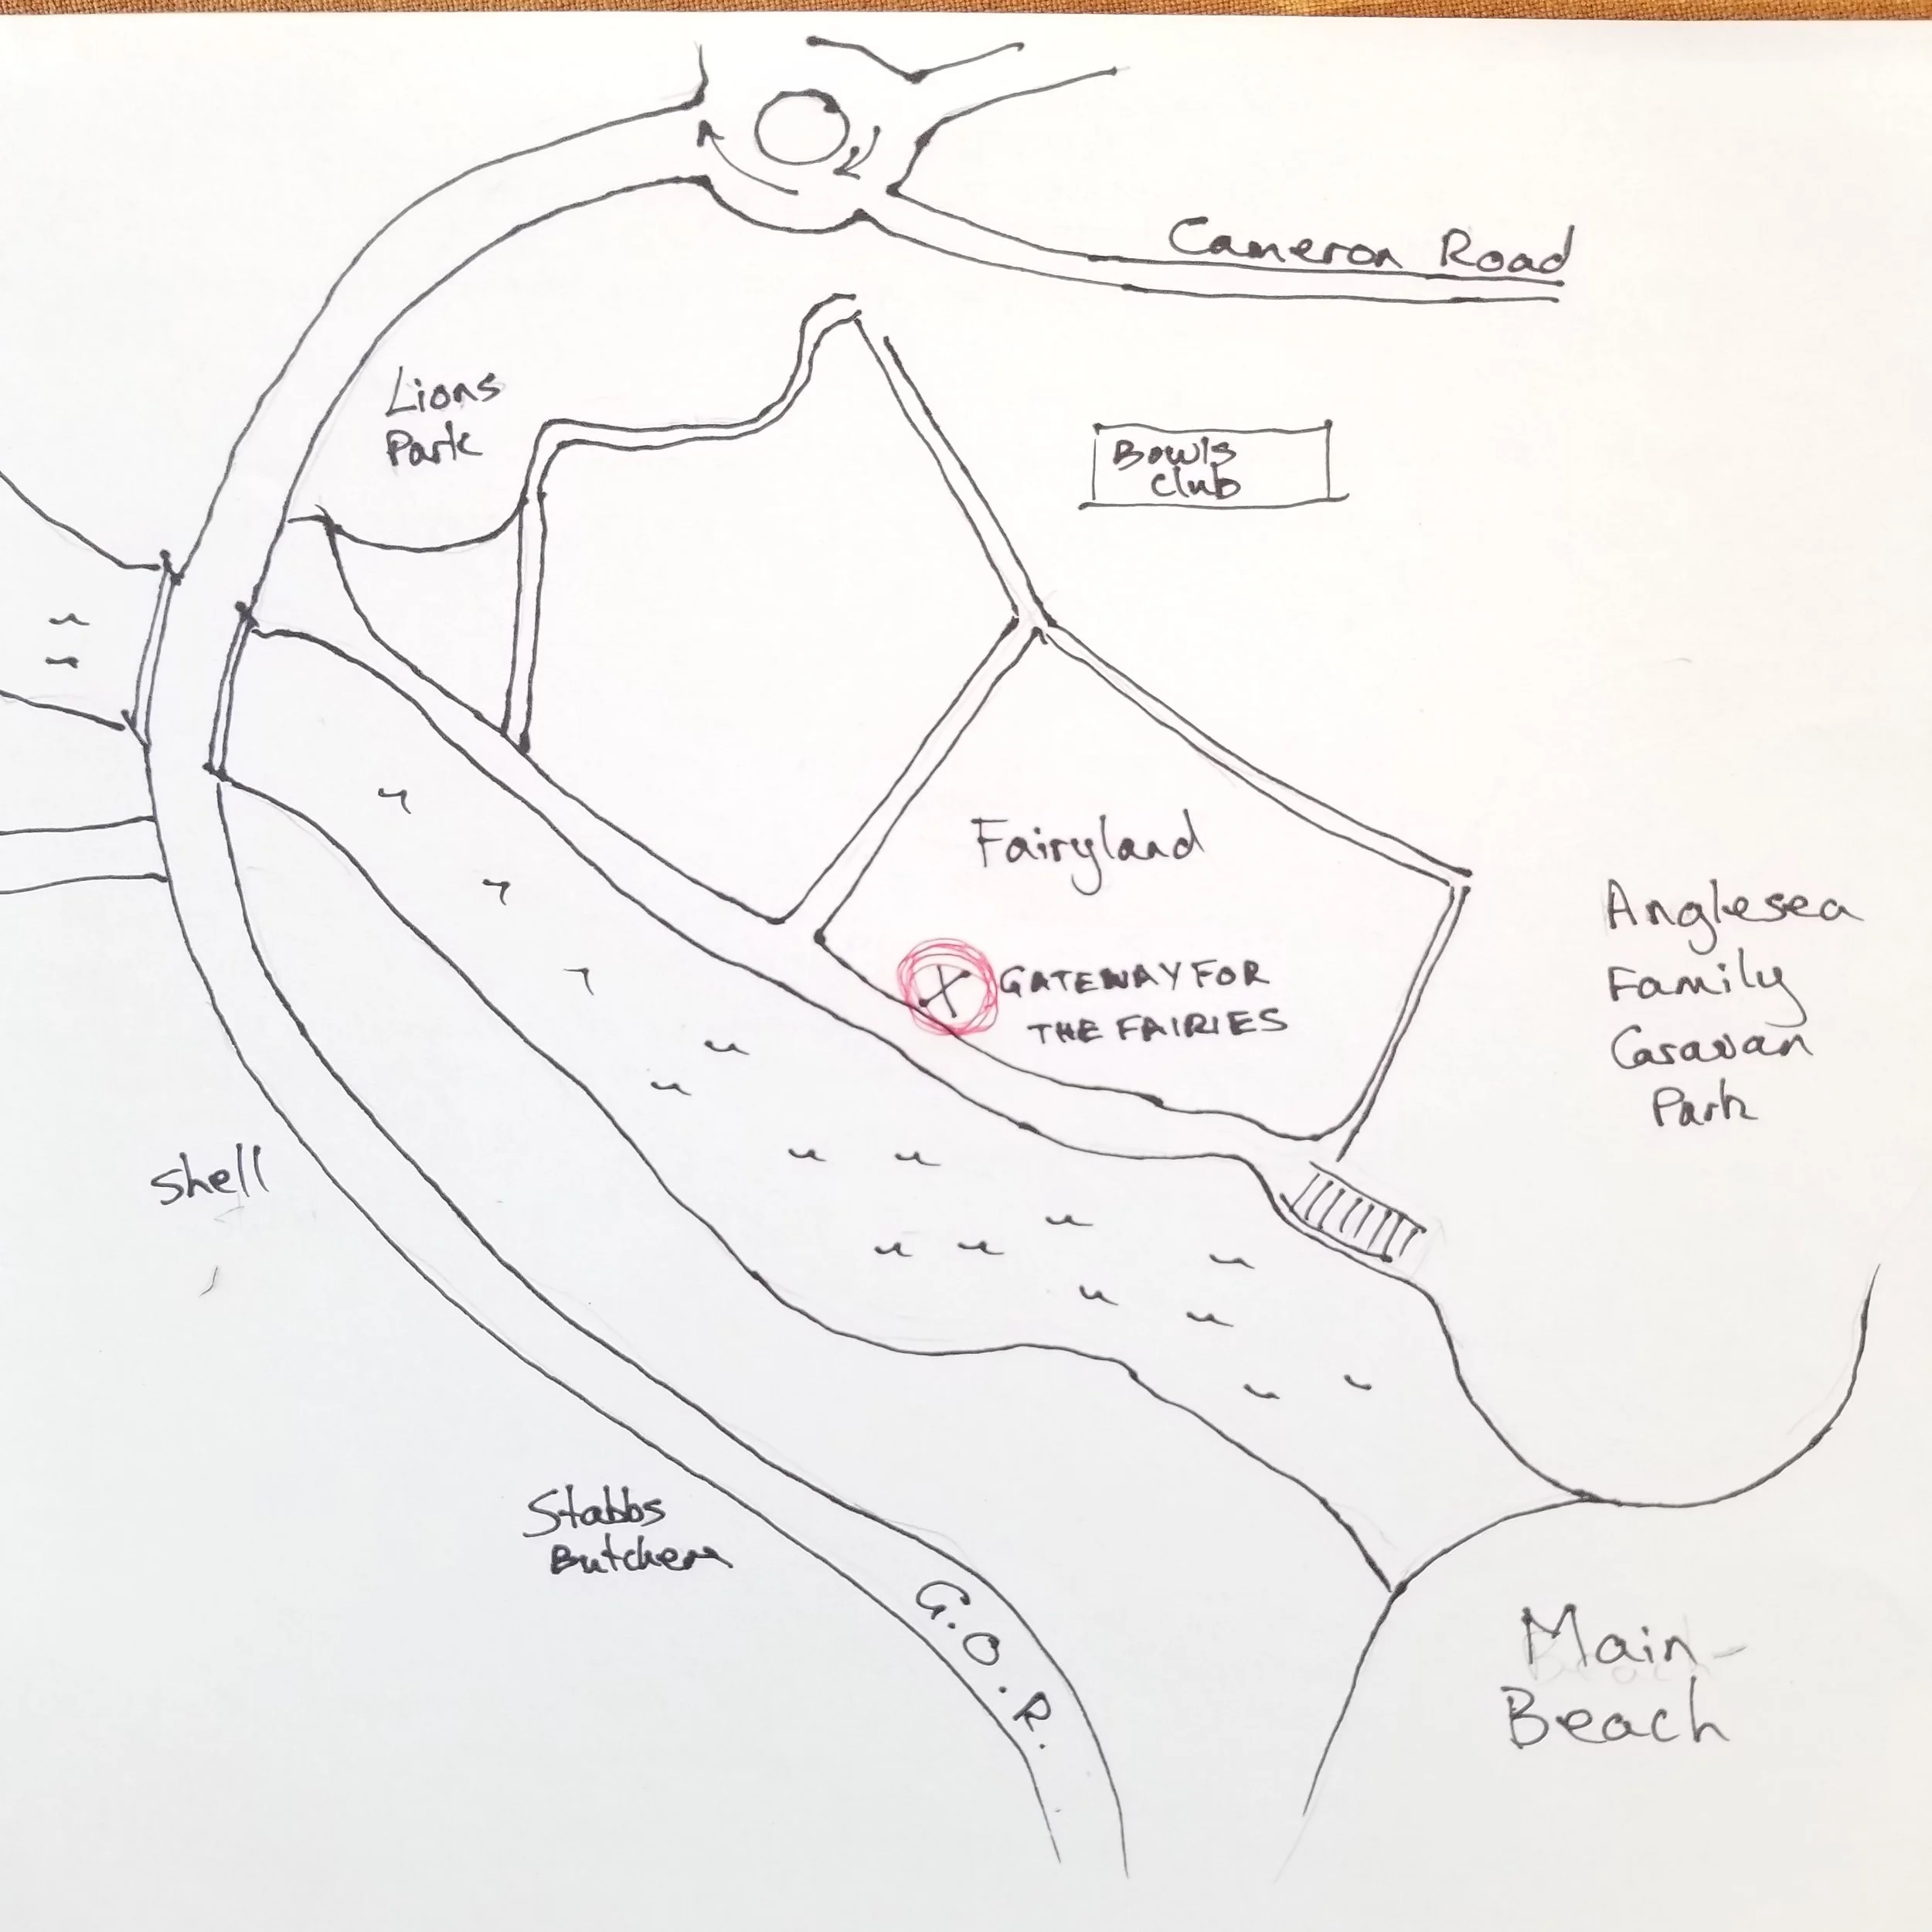 Cameron Road
Lions
Park
Bowls
Club
Fairyland
GATEWAY FOR
THE FAIRIES
Anglesea
Family
Caravan
Park
Shell
Stabbs
Butchers
G.O.R.
Main
Beach